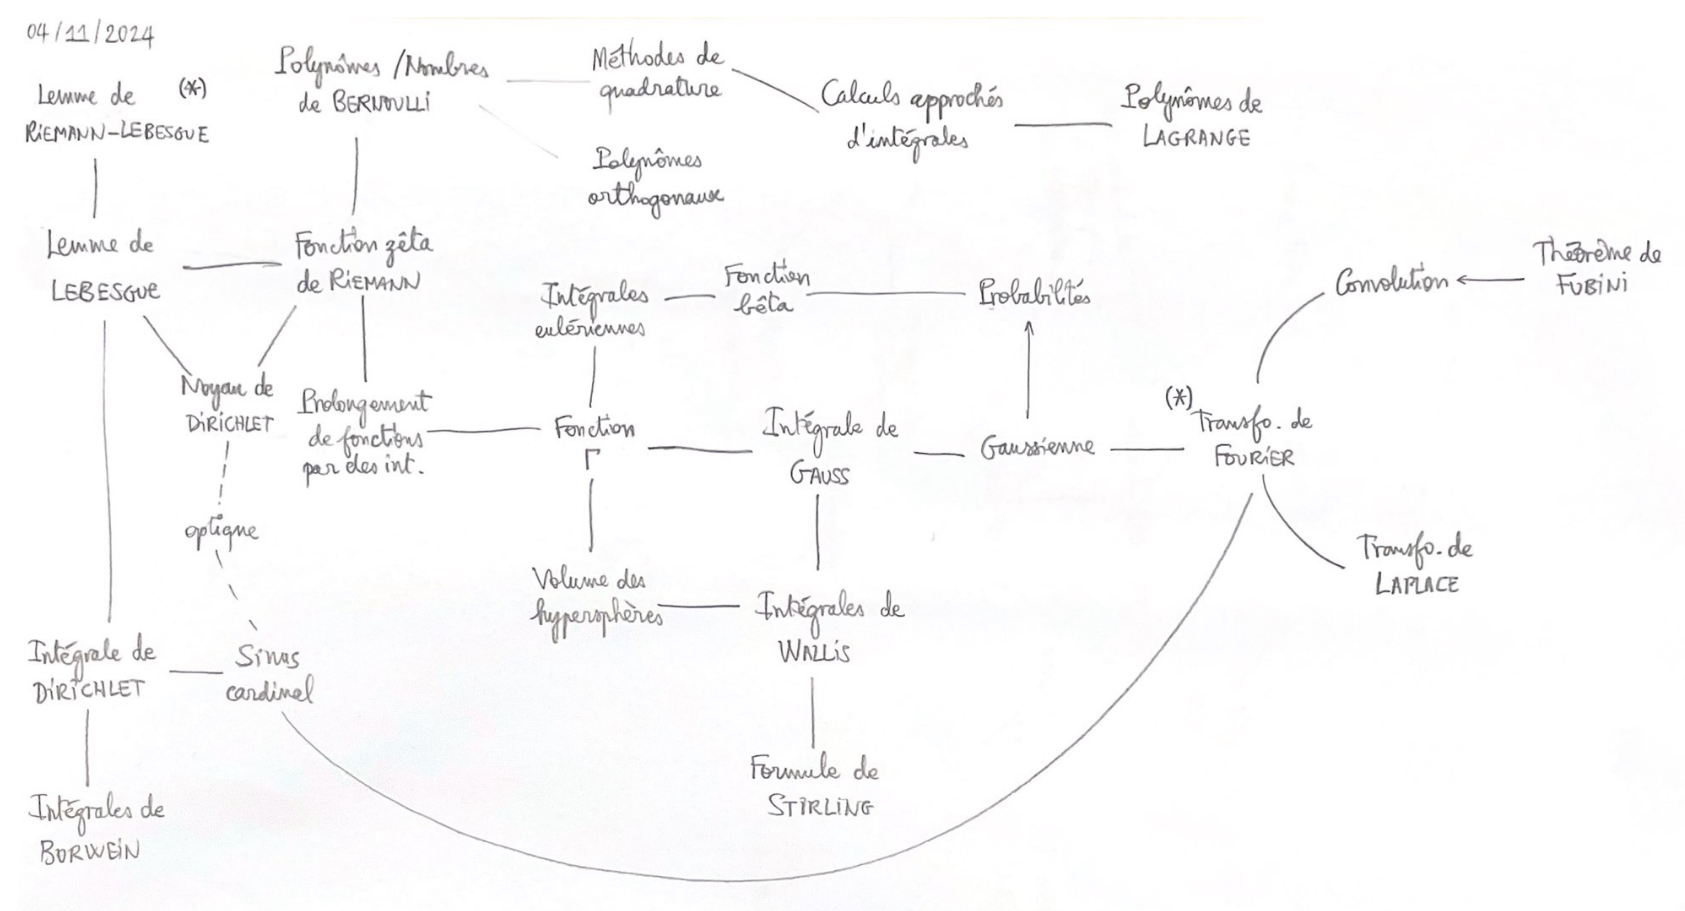 04/11/2024
Lemme de (*)
RIEMANN-LEBESGUE
Polynômes / Nombres
de BERNOULLI
Méthodes de
quadrature
Calculs approchés
d'intégrales
Polynômes de
LAGRANGE
Polynômes
orthogonaux
Lemme de
LEBESGUE
Fonction zêta
de RIEMANN
Intégrales
eulériennes
Fonction
bêta
Probabilités
Convolution
Théorème de
FUBINI
Noyau de
DIRICHLET
Prolongement
de fonctions
par des int.
Fonction
Γ
Intégrale de
GAUSS
Gaussienne
(*)
Transfo. de
FOURIER
optique
Volume des
hypersphères
Intégrales de
WALLIS
Transfo. de
LAPLACE
Intégrale de
DIRICHLET
Sinus
cardinal
Formule de
STIRLING
Intégrales de
BORWEIN